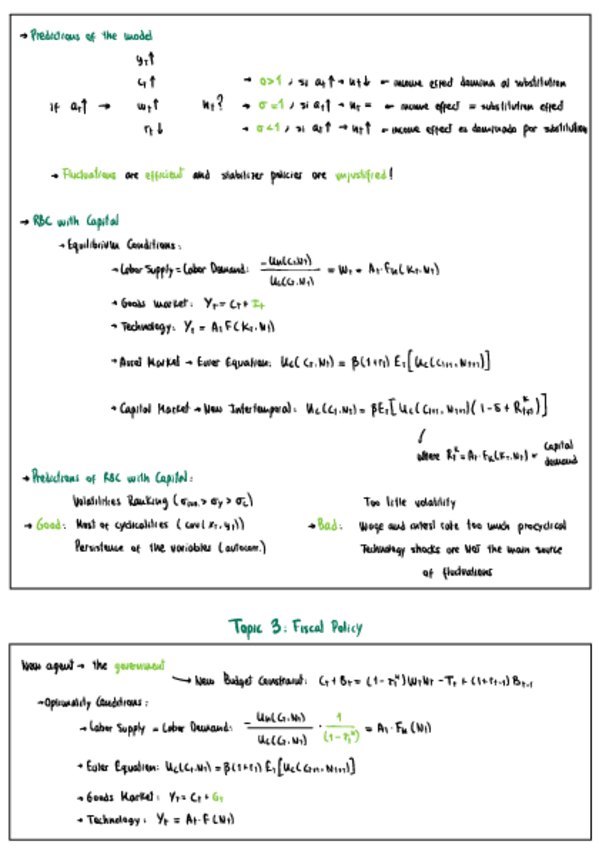 → Predictions of the model
yₜ↑
cₜ↑ → σ>1, si aₜ↑ → nₜ↓ ← income effect domina al substitution
if aₜ↑ → wₜ↑ nₜ? → σ=1, si aₜ↑ → nₜ = ← income effect = substitution effect
rₜ↓ → σ<1, si aₜ↑ → nₜ↑ ← income effect es dominado por substitution
→ Fluctuations are efficient and stabilizer policies are unjustified!
→ RBC with Capital
→ Equilibrium Conditions:
→ Labor Supply = Labor Demand: -Uₙ(Cₜ,Nₜ) / U꜀(Cₜ,Nₜ) = Wₜ = Aₜ·Fₙ(Kₜ,Nₜ)
→ Goods market: Yₜ = Cₜ + Iₜ
→ Technology: Yₜ = Aₜ F(Kₜ,Nₜ)
→ Asset Market → Euler Equation: U꜀(Cₜ,Nₜ) = β(1+rₜ) Eₜ[U꜀(Cₜ₊₁,Nₜ₊₁)]
→ Capital Market → New Intertemporal: U꜀(Cₜ,Nₜ) = βEₜ[U꜀(Cₜ₊₁,Nₜ₊₁)(1-δ+Rᵏₜ₊₁)]
where Rₜᵏ = Aₜ·Fₖ(Kₜ,Nₜ) = Capital demand
→ Predictions of RBC with Capital:
Volatilities Ranking (σᵢₙᵥ.>σy>σc) Too little volatility
→ Good: Most of cyclicalities (cov(xₜ,yₜ)) → Bad: Wage and interest rate too much procyclical
Persistence of the variables (autocorr.) Technology shocks are NOT the main source
of fluctuations
Topic 3: Fiscal Policy
New agent → the government
→ New Budget Constraint: Cₜ+Bₜ = (1-τₜⁿ)WₜNₜ - Tₜ + (1+rₜ₋₁)Bₜ₋₁
→ Optimality Conditions:
→ Labor Supply = Labor Demand: - Uₙ(Cₜ,Nₜ) / U꜀(Cₜ,Nₜ) · 1 / (1-τₜⁿ) = Aₜ·Fₙ(Nₜ)
→ Euler Equation: U꜀(Cₜ,Nₜ) = β(1+rₜ) Eₜ[U꜀(Cₜ₊₁,Nₜ₊₁)]
→ Goods Market: Yₜ = Cₜ + Gₜ
→ Technology: Yₜ = Aₜ·F(Nₜ)